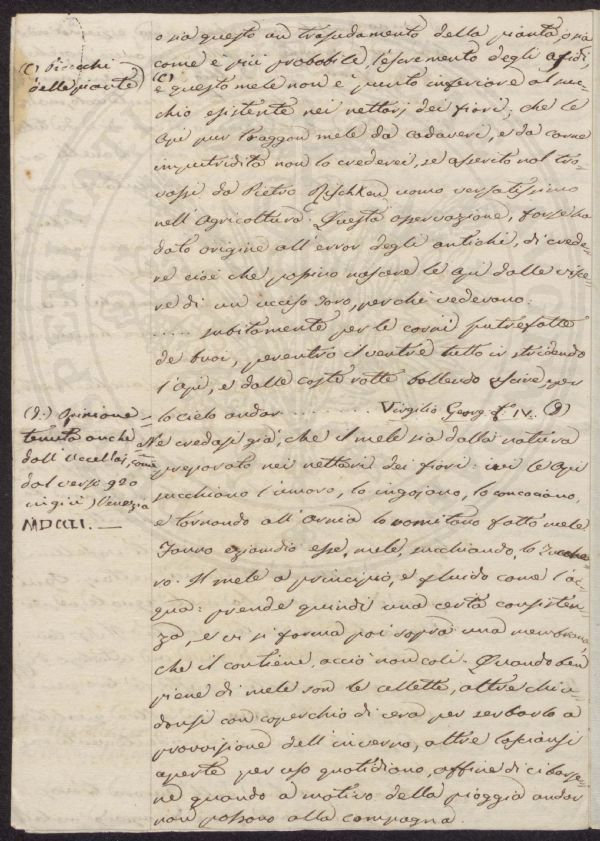 o sia questo un trasudamento della pianta, o sia
come è più probabile, l'escremento degli afidi,
(c) Pidocchi
delle piante
(c)
e questo mele non è punto inferiore al suc-
chio esistente nei nettarj dei fiori; che le
Api pur traggon mele da cadaveri, e da carne
imputridita non lo crederei, se asserito nol tro-
vassi da Pietro uomo versatissimo
nell'Agricoltura. Questa osservazione, forse ha
dato origine all'error degli antichi, di crede-
re cioè che possino nascere le Api dalle visce-
re di un ucciso toro, perchè vedevano:
..... subitamente per le corni putrefatte
de buoi, per entro il ventre tutto ir stridendo
l'api, e dalle coste rotte bollendo escire, per
lo cielo andar ......... Virgilio Georg. L. IV. (d)
(d.) Opinione
tenuta anche
dall'Uccellai, come
dal verso 920
in giù) Venezia
MDCCLI. —
Ne credasi già, che il mele sia dalla natura
preparato nei nettari dei fiori: ivi le Api
succhiano l'umore, lo ingojano, lo concociano,
e tornando all'Arnia lo vomitano fatto mele
Fanno eziandio esse, mele, succhiando, lo Zucche-
ro. Il mele a principio, è fluido come l'ac-
qua: prende quindi una certa consisten-
za, e vi si forma poi sopra una membrana,
che il contiene, acciò non coli. Quando ben
piene di mele son le cellette, altre chiu-
donsi con coperchio di cera per serbarlo a
provvisione dell'inverno, altre lasciansi
aperte per uso quotidiano, affine di cibarse-
ne quando a motivo della pioggia andar
non possono alla campagna.